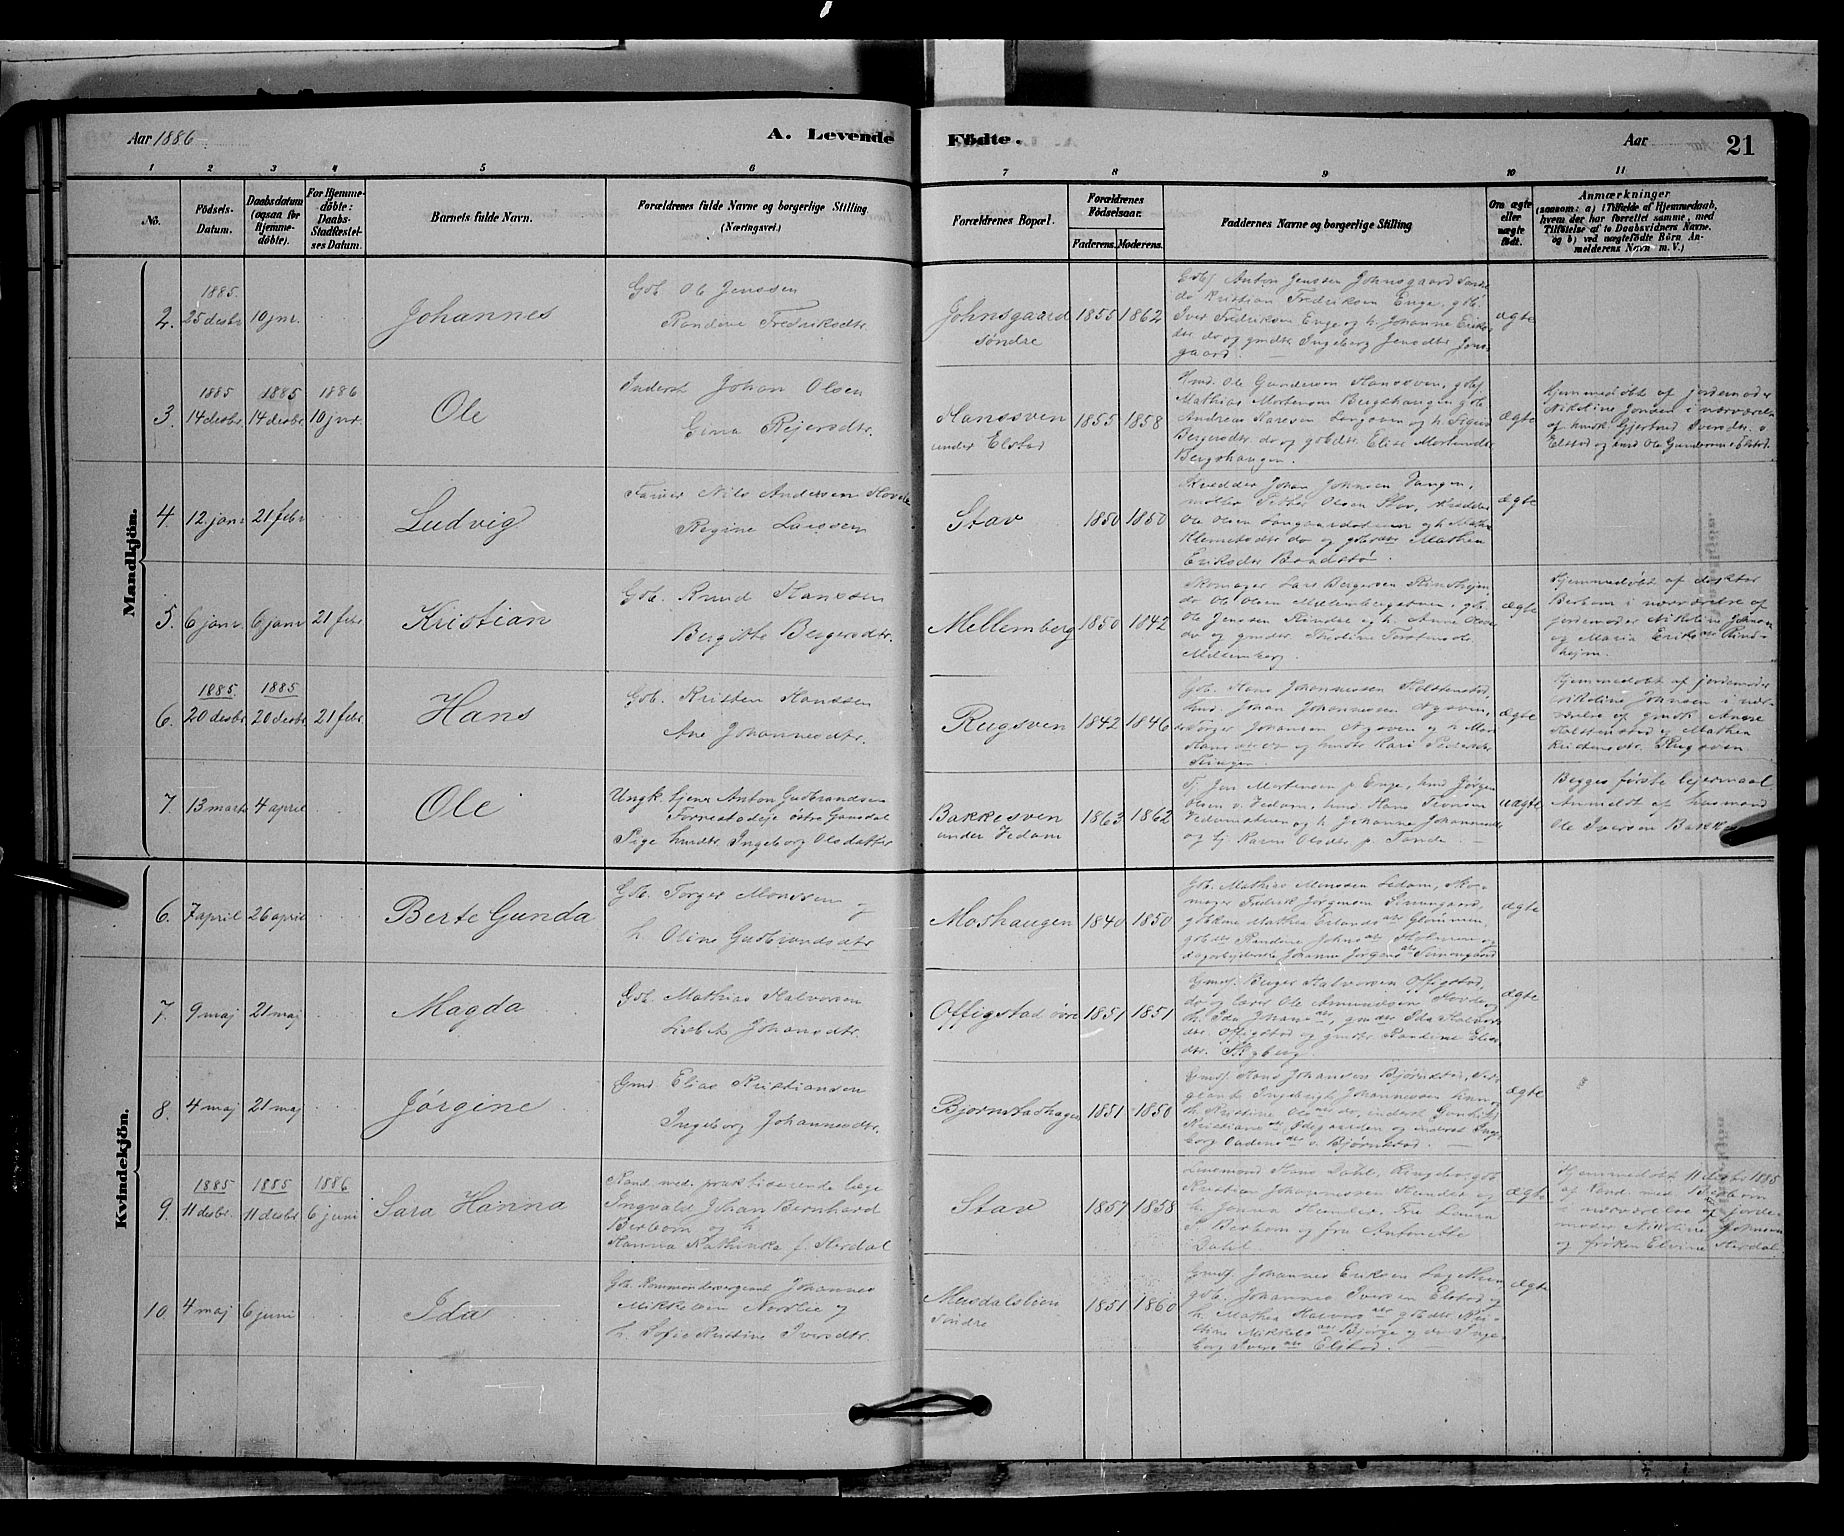 Aar 1886.
A. Levende Födte.
Aar
21
1 2 3 4 5 6 7 8 9 10 11
No.
Födsels-Datum.
Daabsdatum (ogsaa for Hjemmedöbte).
For Hjemmedöbte: Daabs-Stadfæstelses Datum.
Barnets fulde Navn.
Forældrenes fulde Navne og borgerlige Stilling (Næringsvei.)
Forældrenes Bopæl.
Forældrenes Födselsaar.
Faderens. Moderens.
Faddernes Navne og borgerlige Stilling
Om ægte eller uægte födt.
Anmærkninger
(saasom: a) i Tilfælde af Hjemmedaab, hvem der har forrettet samme, med Tilföielse af to Daabsvidners Navne. og b) ved uægtefödte Börn Anmelderens Navn m. V.)
Mandkjön.
2. 1885. 25 desbr 10 jnr. Johannes
Gbr. Ole Jenssen
Randine Fredriksdtr.
Johnsgaard
søndre
1855 1862
Gbf. Anton Jenssen Johnsgaard søndre
do Kristian Fredriksen Enge, gbr.
Iver Fredriksen Enge og h. Johanne Eriks-
dtr do og gmdtr Ingeborg Jensdtr Jons-
gaard.
ægte
3. 1885 14 desbr 1885 14 desbr 1886 10 jnr. Ole
Inderst Johan Olsen
Eina Rejersdtr.
Hanssven
under Elstad
1855 1858
Hmd. Ole Gundersen Hanssven, gbf.
Mathias Mortensen Bergshaugen gbr.
Andreas Larsen og h. Sigrid
Bergersdtr. do og gbdtr. Elise Mortensdtr
Bergshaugen.
ægte
Hjemmedøbt af jordemoder
Nikoline Jonsen i nærværelse
af husk Gjertrud Iversdtr. v.
Elstad og hmd Ole Gundersen Elstad.
4. 12. janr 21 febr Ludvig
Farver Nils Andersen Hovde
Regine Larssen
Stav
1850 1850
Johan Johnsen Vangen,
møller Petter Olsen Stav,
Ole Olsen og h. Mathea
Klemetsdtr do og Mathea
Eriksdtr
ægte
5. 6 janr. 6 janr 21 febr. Kristian
Gbr. Knud Hanssen
Bergitte Bergersdtr.
Mellemberg
1850 1842
Skomager Lars Bergersen Rindhejm
do Ole Olsen Mellembergsven, gbr.
Ole Jenssen og h. Anne Olsdtr
do og gmdtr
Mellemberg.
ægte
Hjemmedøbt af doktor
Berbom i nærværelse af
jordemoder Nikoline Johnsen
og Maria Eriksdtr Rind-
hejm.
6. 1885. 20 desbr 1885 20 desbr 21 febr. Hans
Gbr. Kristen Hanssen
Ane Johannesdtr.
Rugsven
1842 1846
Gbr. Hans Johannessen Holstenstad,
hmd. Johan Johannessen Nysven,
Torger Johansen Nysven og h. Mari
Hansdtr og hmdtr Kari Pedersdtr
ægte
Hjemmedøbt af jordemoder
Nikoline Johnsen i nær-
værelse af gmdk Anne
Holstenstad og Mathea
Kristensdtr. Rugsven.
7. 13 marts 4 april Ole
Ungk. tjener Anton Gudbrandsen
Forrestadeje østre Gausdal
Pige hmdtr. Ingeborg Olsdatter
Bakkesven
under Vedum
1863 1862
Tj. Jon Mortensen p. Enge, hmd Jørgen
Olsen v. Vedum, hmd. Hans Iversen
og h. Johanne Johannesdtr
og tj. Karen Olsdtr p. Tande.
uægte
Begges første lejermaal
Anmeldt af husmand
Ole Iversen Bakkesven
Kvindekjön.
6. 7 april 26 april Berte Gunda
Gbr. Torger Monssen og
h. Oline Gudbrandsdtr.
Moshaugen
1840 1850
Gbr. Mathias Monssen Ledum, sko-
mager Fredrik Jørgensen Simengaard,
gbkone Mathea Erlandsdtr Glømmen,
gbdtr Randine Johnsdtr Holmen og
dagarbejderske Johanne Jørgensdtr Simengaard
ægte
7. 9 maj 21 maj Magda
Gbr. Mathias Halvorsen
Lisbet Johansdtr.
Offigstad øvre
1851 1851
Gmsf. Berger Halvorsen Offigstad,
do og lærer Ole Amundsen Hovde og
h. Ida Johansdtr, gmdtr Ida Halvors-
dtr. Offigstad og gmdtr Randine Elias-
dtr. Skyberg.
ægte
8. 4 maj 21 maj Jørgine
Gmd. Elias Kristiansen
Ingeborg Johannesdtr.
Bjørnstadhagen
1851 1850
Gmsf. Hans Johansen Bjørnstad,
Ingebrigt Johannessen
h. Kristine Olsdtr do, inderst
Kristiansdtr og inderst Inge-
borg v. Bjørnstad.
ægte
9. 1885 11 desbr. 1885 11 desbr. 1886 6 juni Sara Hanna
Kand. med. praktiserende læge
Ingvald Johan Bernhard
Berbom og h.
Hanna Kathinka f. Herdal
Stav
1857 1858
Lensmand Hans Dahl, Ringebu, gbr.
Kristian Johannessen Hundst og
h. Fru Laura
S. Berbom og fru Antonette
Dahl.
ægte
Hjemmedøbt 11 desbr 1885
af Kand med. Berbom
i nærværelse af jorde-
moder Nikoline Johnsen
og frøken Elvine Herdal.
10. 4 maj 6 juni Ida
Gbr. Kommandersergeant Johannes
Mikkelsen Nordlie og
h. Sofie Kristine Iversdtr.
Musdalslien
søndre
1851 1860
Gmsf. Johannes Eriksen
gbr. Johannes Iversen Elstad og
h. Mathea Halvorsdtr gbdtr Kri-
stine Mikkelsdtr Bjørge og do Inge-
borg Iversdtr Elstad.
ægte